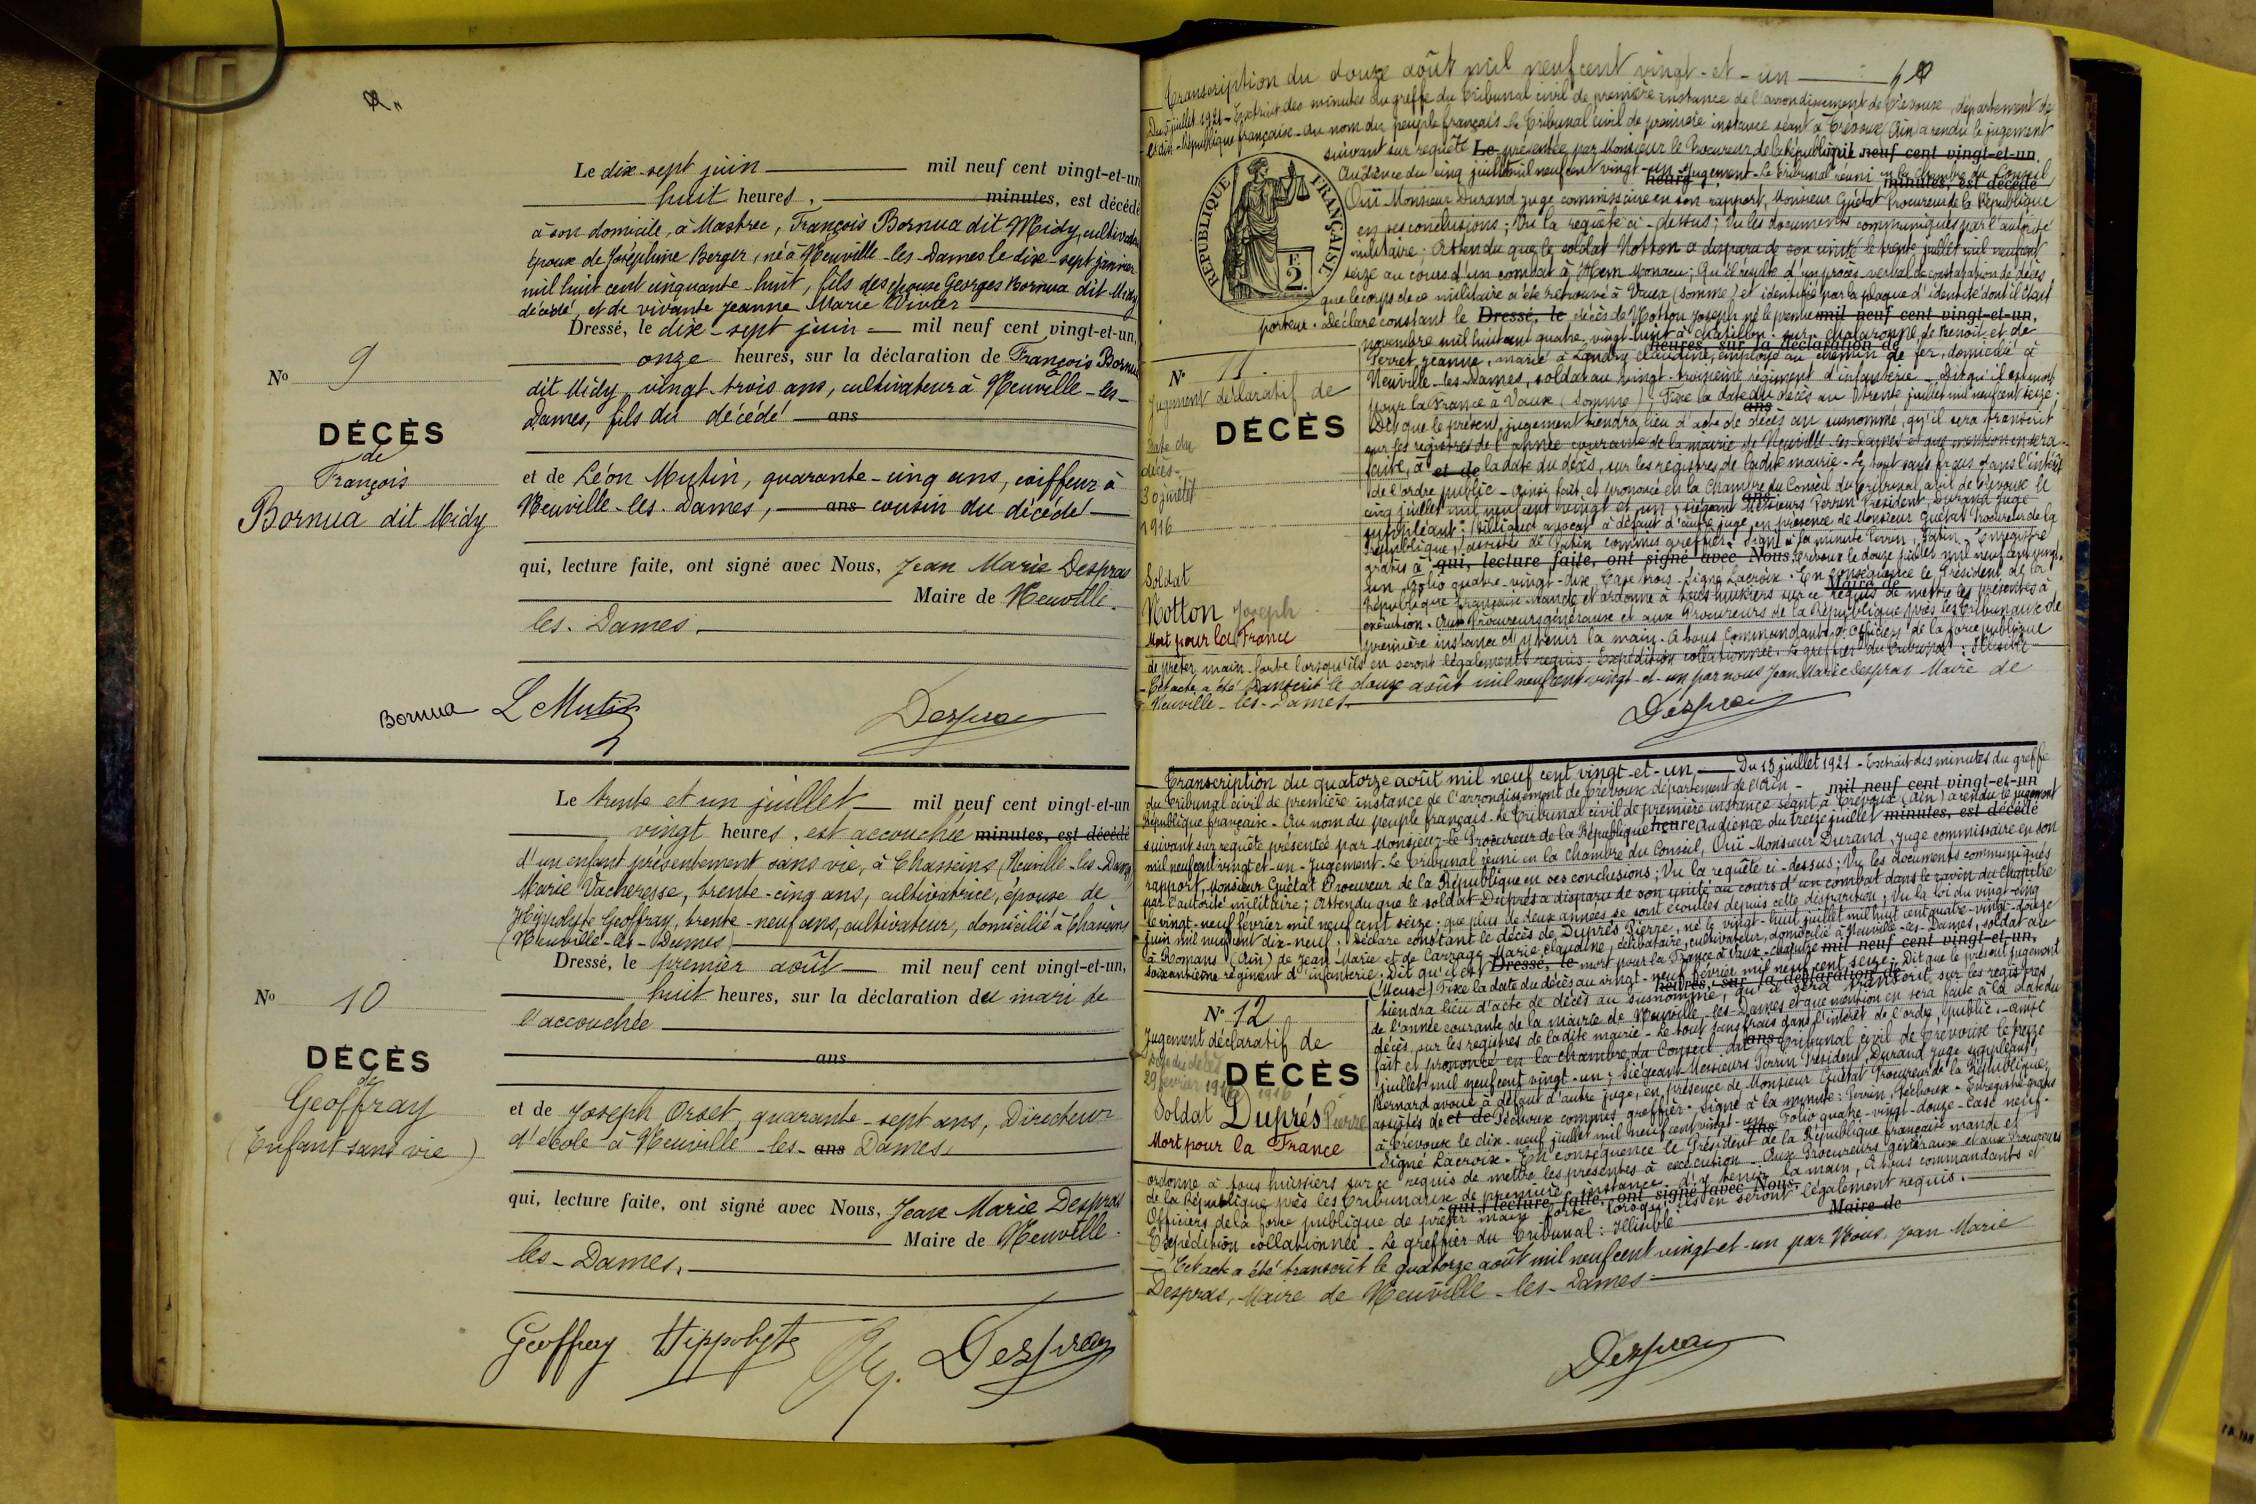 Le dix-sept juin mil neuf cent vingt-et-un
huit heures, minutes, est décédé
à son domicile, à Mastrec, François Bornua dit Midy, cultivateur
époux de Joséphine Berger, né à Neuville-les-Dames le dix-sept janvier
mil huit cent cinquante-huit, fils des époux Georges Bornua dit Midy
décédé, et de vivante Jeanne Marie Vivier
Dressé, le dix-sept juin mil neuf cent vingt-et-un,
onze heures, sur la déclaration de François Bornua
dit Midy, vingt-trois ans, cultivateur à Neuville-les-
Dames, fils du décédé ans
et de Léon Mutin, quarante-cinq ans, coiffeur à
Neuville-les-Dames, ans cousin du décédé
qui, lecture faite, ont signé avec Nous, Jean Marie Despras
Maire de Neuville-
les-Dames.
No 9
DÉCÈS
de
François
Bornua dit Midy
Bornua L Mutin Despras
Le trente et un juillet mil neuf cent vingt-et-un
vingt heures, est accouchée minutes, est décédé
d'un enfant présentement sans vie, à Chassins (Neuville-les-Dames)
Marie Vacheresse, trente-cinq ans, cultivatrice, épouse de
Hippolyte Geoffray, trente-neuf ans, cultivateur, domicilié à Chassins
(Neuville-les-Dames)
Dressé, le premier août mil neuf cent vingt-et-un,
huit heures, sur la déclaration du mari de
l'accouchée
ans
et de Joseph Orset, quarante-sept ans, Directeur
d'école à Neuville-les- ans Dames,
qui, lecture faite, ont signé avec Nous, Jean Marie Despras
Maire de Neuville-
les-Dames.
No 10
DÉCÈS
de
Geoffray
(Enfant sans vie)
Geoffray Hippolyte Despras
Transcription du douze août mil neuf cent vingt-et-un
Du 5 juillet 1921 - Extrait des minutes du greffe du Tribunal civil de première instance de l'arrondissement de Trévoux, département de
l'Ain - République française - Au nom du peuple français - Le Tribunal civil de première instance séant à Trévoux (Ain) a rendu le jugement
suivant sur requête Le présentée par Monsieur le Procureur de la République mil neuf cent vingt-et-un.
Audience du cinq juillet mil neuf cent vingt-un heure Jugement - Le Tribunal réuni en la Chambre du Conseil minutes, est décédé
Ouï Monsieur Durand Juge commissaire en son rapport, Monsieur Guétat Procureur de la République
en ses conclusions ; Vu la requête ci-dessus ; Vu les documents communiqués par l'autorité
militaire ; Attendu que le soldat Notton a disparu de son unité le trente juillet mil neuf cent
seize au cours d'un combat à Hem Monacu ; Qu'il résulte d'un procès-verbal de constatation de décès
que le corps de ce militaire a été retrouvé à Vaux (Somme) et identifié par la plaque d'identité dont il était
porteur. Déclare constant le Dressé, le décès de Notton Joseph né le trente mil neuf cent vingt-et-un,
novembre mil huit cent quatre vingt-huit à Chatillon-sur-Chalaronne, de Benoit et de heures, sur la déclaration de
Perret Jeanne, marié à Landry Claudine, employé au chemin de fer, domicilié à
Neuville-les-Dames, soldat au vingt-troisième régiment d'infanterie - Dit qu'il est mort
pour la France à Vaux (Somme) Fixe la date du décès au trente juillet mil neuf cent seize ; ans
Dit que le présent jugement tiendra lieu d'acte de décès au susnommé, qu'il sera transcrit
sur les registres de l'année courante de la mairie de Neuville-les-Dames et que mention en sera
faite, à et de la date du décès, sur les registres de ladite mairie - Le tout sans frais dans l'intérêt
de l'ordre public - Ainsi fait et prononcé en la Chambre du Conseil du Tribunal civil de Trévoux le ans
cinq juillet mil neuf cent vingt et un ; siégeant Messieurs Perrin Président, Durand Juge
suppléant ; avocat à défaut d'autre juge, en présence de Monsieur Guétat Procureur de la
République, assistés de commis greffier. Signé à la minute Perrin, - Enregistré
gratis à qui, lecture faite, ont signé avec Nous Trévoux le douze juillet mil neuf cent vingt-
un folio quatre-vingt-dix, Case trois. Signé Lacroix. En conséquence le Président de la Maire de
République française mande et ordonne à tous huissiers sur ce requis de mettre les présentes à
exécution. Aux Procureurs généraux et aux Procureurs de la République près les Tribunaux de
première instance d'y tenir la main. A tous Commandants et Officiers de la force publique
de prêter main-forte lorsqu'ils en seront légalement requis. Expédition collationnée. Le greffier du Tribunal : Illisible
Cet acte a été transcrit le douze août mil neuf cent vingt-et-un par nous Jean Marie Despras Maire de
Neuville-les-Dames
Despras
RÉPUBLIQUE FRANÇAISE
F
2.
No 11.
Jugement déclaratif de
DÉCÈS
Date du
décès-
30 juillet
1916
Soldat
Notton Joseph
Mort pour la France
Transcription du quatorze août mil neuf cent vingt-et-un, Du 13 juillet 1921 - Extrait des minutes du greffe
du Tribunal civil de première instance de l'arrondissement de Trévoux département de l'Ain - mil neuf cent vingt-et-un
République française - Au nom du peuple français - Le Tribunal civil de première instance séant à Trévoux (Ain) a rendu le jugement
suivant sur requête présentée par Monsieur le Procureur de la République heure Audience du treize juillet minutes, est décédé
mil neuf cent vingt-et-un - Jugement - Le Tribunal réuni en la Chambre du Conseil, Ouï Monsieur Durand, Juge commissaire en son
rapport, Monsieur Guétat Procureur de la République en ses conclusions ; Vu la requête ci-dessus ; Vu les documents communiqués
par l'autorité militaire ; Attendu que le soldat Duprés a disparu de son unité au cours d'un combat dans le ravin du Chapitre
le vingt-neuf février mil neuf cent seize ; que plus de deux années se sont écoulées depuis cette disparition ; Vu la loi du vingt-cinq
juin mil neuf cent dix-neuf. Déclare constant le décès de Duprés Pierre, né le vingt-huit juillet mil huit cent quatre-vingt-douze
à Romans (Ain) de Jean Marie et de Carrage Marie Claudine, célibataire, cultivateur, domicilié à Neuville-les-Dames, soldat au
soixantième régiment d'infanterie. Dit qu'il est Dressé, le mort pour la France à Vaux-Chapitre mil neuf cent vingt-et-un,
(Meuse) Fixe la date du décès au vingt-neuf février mil neuf cent seize. Dit que le présent jugement heures, sur la déclaration de
tiendra lieu d'acte de décès au susnommé, qu'il sera transcrit sur les registres
de l'année courante de la mairie de Neuville-les-Dames et que mention en sera faite à la date du
décès, sur les registres de ladite mairie - Le tout sans frais dans l'intérêt de l'ordre public. - Ainsi
fait et prononcé en la Chambre du Conseil du ans Tribunal civil de Trévoux le treize
juillet mil neuf cent vingt-un ; Siégeant Messieurs Perrin Président, Durand juge suppléant,
Bernard avoué à défaut d'autre juge, en présence de Monsieur Guétat Procureur de la République,
assistés de et de Péchoux commis greffier - Signé à la minute : Perrin, Péchoux - Enregistré gratis
à Trévoux le dix-neuf juillet mil neuf cent vingt-un ans Folio quatre-vingt-douze - Case neuf -
Signé Lacroix - En conséquence le Président de la République française mande et
ordonne à tous huissiers sur ce requis de mettre les présentes à exécution - Aux Procureurs généraux et aux Procureurs
de la République près les Tribunaux de première instance d'y tenir la main, A tous commandants et
Officiers de la force publique de prêter main forte lorsqu'ils en seront légalement requis. qui, lecture faite, ont signé avec Nous,
Expédition collationnée - Le greffier du Tribunal : Illisible Maire de
Cet acte a été transcrit le quatorze août mil neuf cent vingt et-un par Nous, Jean Marie
Despras, Maire de Neuville-les-Dames
No 12
Jugement déclaratif de
Date du décès
DÉCÈS
29 février 1916
Soldat Duprés Pierre
Mort pour la France
Despras